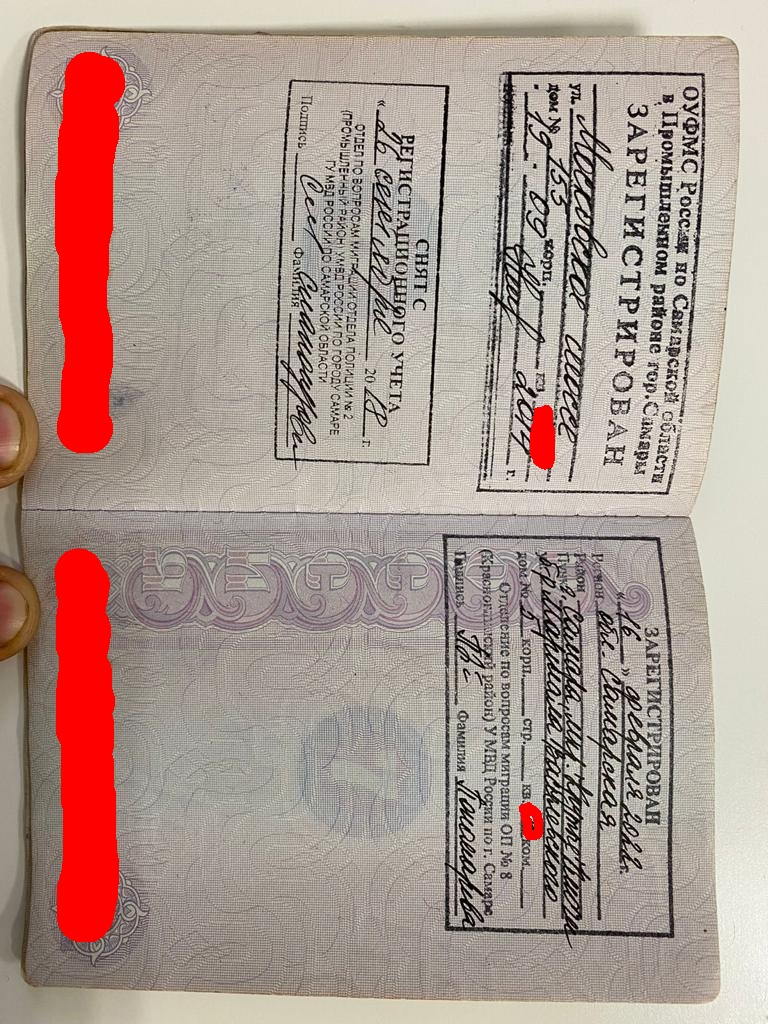 ОУФМС России по Самарской области
в Промышленном районе гор. Самары
ЗАРЕГИСТРИРОВАН
ул. Московское шоссе
дом № 153 корп. кв.
19 . 09 2014 г.
СНЯТ С
РЕГИСТРАЦИОННОГО УЧЕТА
"26" сентября 2018 г.
ОТДЕЛ ПО ВОПРОСАМ МИГРАЦИИ ОТДЕЛА ПОЛИЦИИ № 2
(ПРОМЫШЛЕННЫЙ РАЙОН) УМВД РОССИИ ПО ГОРОДУ САМАРЕ
ГУ МВД РОССИИ ПО САМАРСКОЙ ОБЛАСТИ
Подпись Фамилия
ЗАРЕГИСТРИРОВАН
"16" февраля 2022 г.
Регион обл. Самарская
Район
Пункт г. Самара, мкр. Крутые Ключи
ул. Маршала
дом № 5 корп. стр. кв. ком.
Отделение по вопросам миграции ОП № 8
(Красноглинский район) УМВД России по г. Самаре
Подпись Фамилия Пономарева